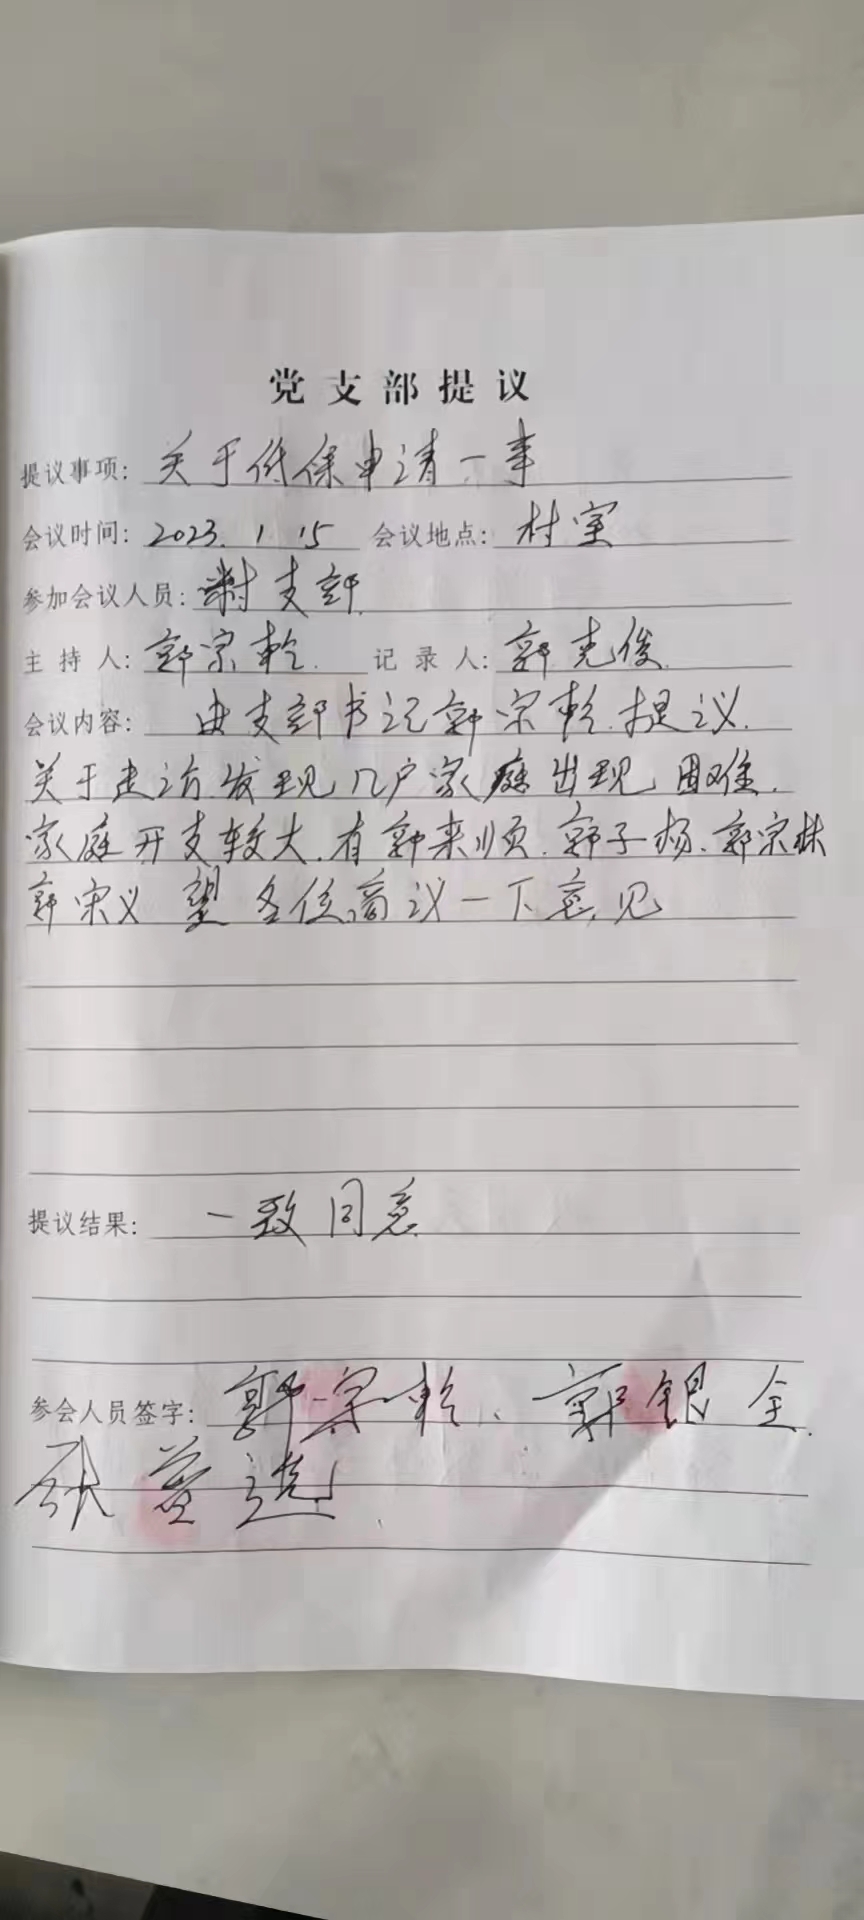 党支部提议
提议事项: 关于低保申请一事
会议时间: 2023. 1 15 会议地点: 村室
参加会议人员: 村支部
主持人: 郭宗乾. 记录人: 郭光俊.
会议内容: 由支部书记郭宗乾.提议.
关于走访发现几户家庭出现困难.
家庭开支较大.有郭来顺.郭子杨.郭宗林
郭宋义 望各位商议一下意见
提议结果: 一致同意
参会人员签字: 郭宗乾、郭银全.
张益选